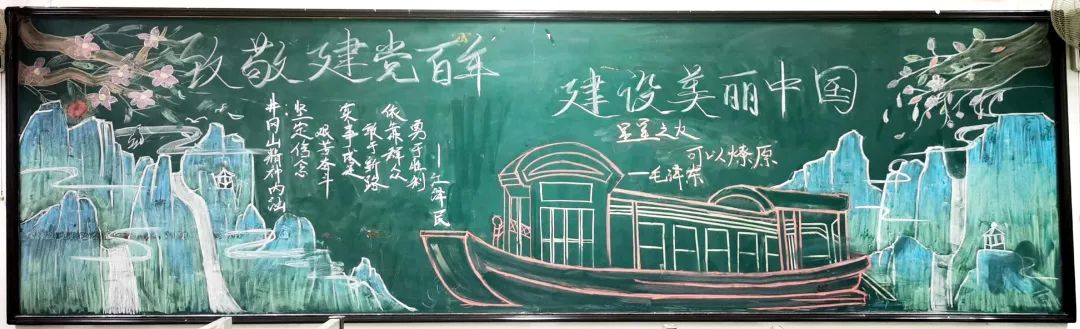 致敬建党百年
井冈山精神内涵:
坚定信念
艰苦奋斗
实事求是
敢于新路
依靠群众
勇于胜利
——江泽民
建设美丽中国
星星之火
可以燎原
——毛泽东